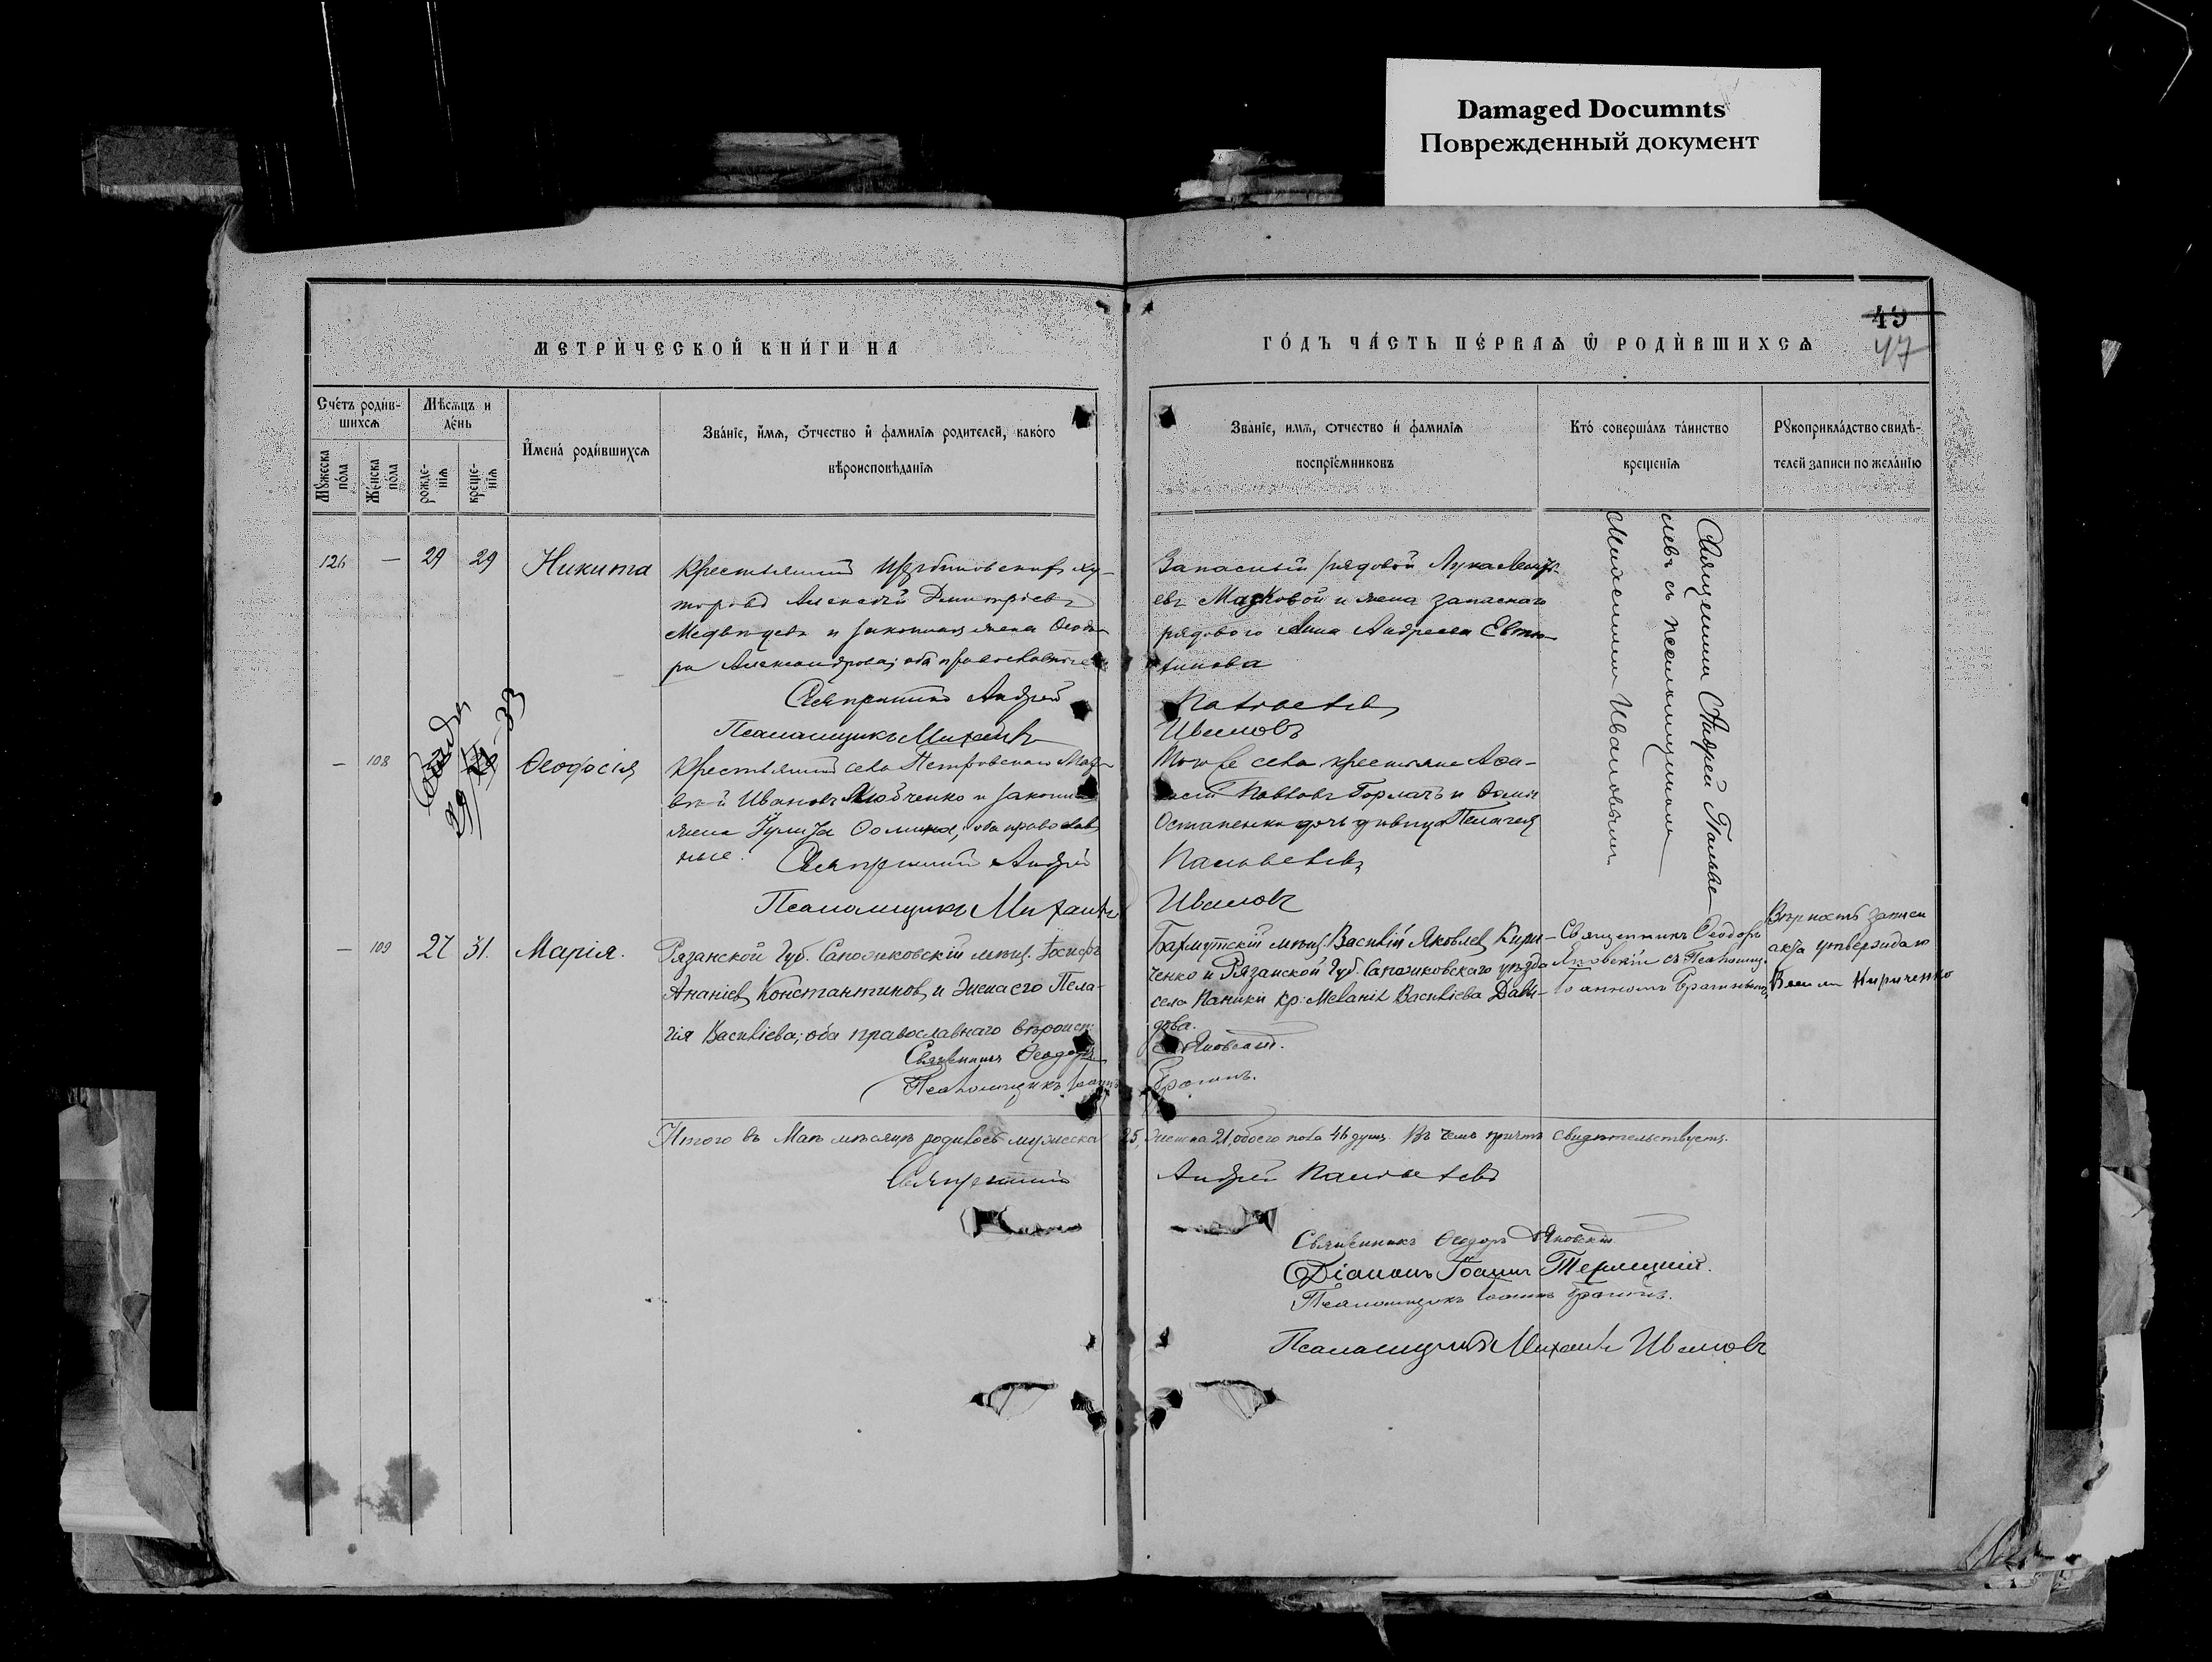 Damaged Documnts
Поврежденный документ
49
47
МЕТРИ́ЧЕСКОЙ КНИ́ГИ НА
ГО́ДЪ ЧА́СТЬ ПЕ́РВАѦ Ѡ РОДИ́ВШИХСѦ
Сче́тъ роди́в-
шихсѧ
Мꙋжеска по́ла
Же́нска по́ла
Мѣсѧцъ и
де́нь
рожде-
нїѧ
креще-
нїѧ
И҆мена́ роди́вшихсѧ
Зва́нїе, и҆́мѧ, ѻ҆́тчество и҆ фамилїѧ родителей, како́го
вѣроисповѣданїѧ
Зва́нїе, имѧ, ѻтчество и҆ фамилїѧ
воспрїе́мниковъ
Кто́ соверша́лъ та́инство
креще́нїѧ
Рꙋкоприкла́дство свидѣ-
телей записи по жела́нїю
126 — 29 29 Никита
Крестьянинъ ху-
торовъ Алексѣй Димитріевъ
Медвѣдевъ и законная жена Ѳеодо-
ра Александрова; оба православные
Священникъ Андрей
Псаломщикъ Михаилъ
Запасный рядовой Лука
евъ Мазковой и жена запаснаго
рядового Анна Андреева Евтю-
Ивановъ
Священникъ Андрей
съ псаломщикомъ
Михаиломъ Ивановымъ
— 108
29
Ѳеодосія
Крестьянинъ села Петровскаго Мат-
вѣй Ивановъ и законная
жена Ѳомина; оба православ-
ные.
Священникъ Андрей
Псаломщикъ Михаилъ
Того же села крестьяне
Павловъ Горлачъ и
Остапенко дочь дѣвица Пелагея
Ивановъ
— 109 27 31. Марія.
Рязанской Губ. Сапожковскій мѣщ. Іосифъ
Ананіевъ Константиновъ и жена его Пела-
гія Василіева; оба православнаго вѣроисп.
Священникъ Ѳеодоръ
Псаломщикъ Іоаннъ
Бахмутскій мѣщ. Василій Яковлевъ Кири-
ченко и Рязанской Губ. Сапожковскаго уѣзда
села Паники кр. Меланія Василіева Давы-
дова.
Яновскій.
Брагинъ.
Священникъ Ѳеодоръ
Яновскій съ Псаломщ.
Іоанномъ Брагинымъ
Вѣрность записи
акта утверждаю
Кириченко
Итого въ Маѣ мѣсяцѣ родилось мужеска 25, женска 21, обоего пола 46 душъ. Въ чемъ причтъ свидѣтельствуетъ.
Священникъ Андрей
Священникъ Ѳеодоръ Яновскій
Діаконъ Іоаннъ Терлецкій.
Псаломщикъ Іоаннъ Брагинъ.
Псаломщикъ Михаилъ Ивановъ